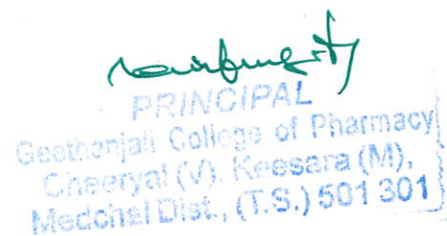 PRINCIPAL
Geethanjali College of Pharmacy
Cheeryal (V), Keesara (M),
Medchal Dist., (T.S.) 501 301